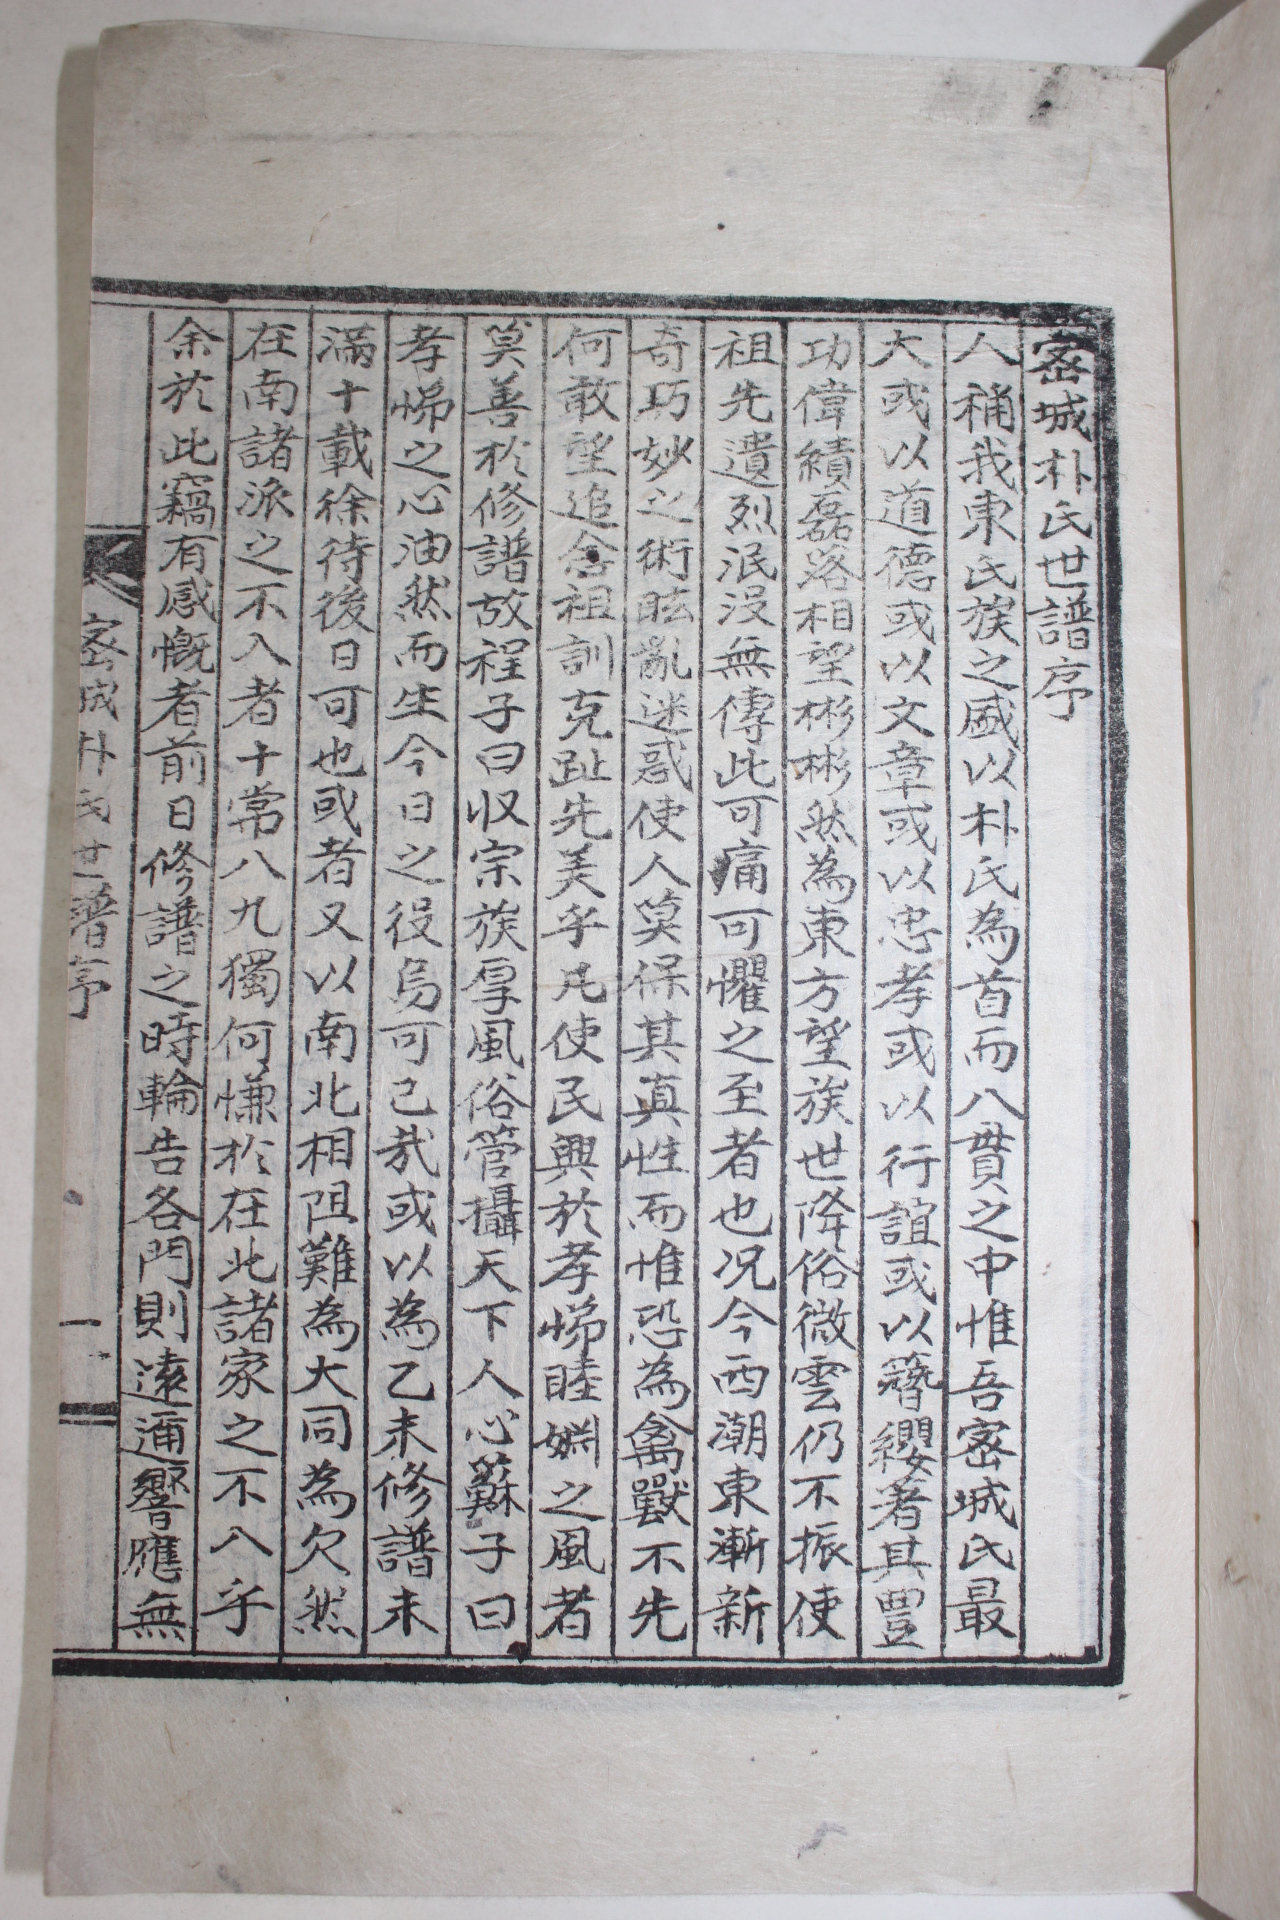 密城朴氏世譜序
人稱我東氏族之盛以朴氏為首而八貫之中惟吾密城氏最
大或以道德或以文章或以忠孝或以行誼或以簪纓著其豊
功偉績磊落相望彬彬然為東方望族世降俗微雲仍不振使
祖先遺烈泯沒無傳此可痛可懼之至者也况今西潮東漸新
奇巧妙之術眩亂迷惑使人莫保其真性而惟恐為禽獸不先
何敢望追念祖訓克趾先美乎凡使民興於孝悌睦婣之風者
莫善於修譜故程子曰収宗族厚風俗管攝天下人心蘇子曰
孝悌之心油然而生今日之役烏可已哉或以為乙未修譜未
滿十載徐待後日可也或者又以南北相阻難為大同為欠然
在南諸派之不入者十常八九獨何慊於在北諸家之不入乎
余於此竊有感慨者前日修譜之時輪告各門則遠邇響應無
密城朴氏世譜序
一